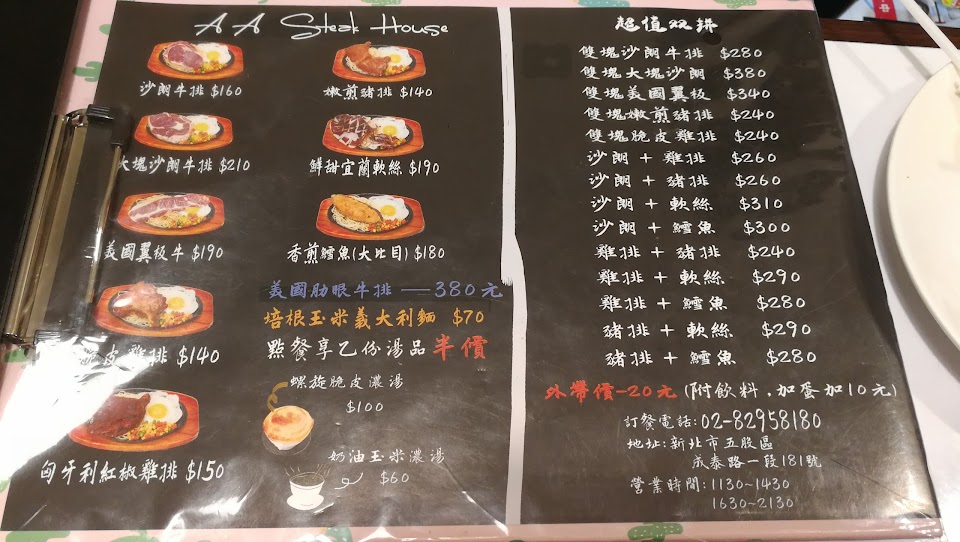 AA Steak House
沙朗牛排 $160
嫩煎豬排 $140
大塊沙朗牛排 $210
鮮甜宜蘭軟絲 $190
美國翼板牛 $190
香煎鱈魚(大比目) $180
皮雞排 $140
美國肋眼牛排 — 380元
培根玉米義大利麵 $70
點餐享乙份湯品半價
匈牙利紅椒雞排 $150
螺旋脆皮濃湯
$100
奶油玉米濃湯
$60
超值双拼
雙塊沙朗牛排 $280
雙塊大塊沙朗 $380
雙塊美國翼板 $340
雙塊嫩煎豬排 $240
雙塊脆皮雞排 $240
沙朗 + 雞排 $260
沙朗 + 豬排 $260
沙朗 + 軟絲 $310
沙朗 + 鱈魚 $300
雞排 + 豬排 $240
雞排 + 軟絲 $290
雞排 + 鱈魚 $280
豬排 + 軟絲 $290
豬排 + 鱈魚 $280
外帶價-20元(附飲料.加蛋加10元)
訂餐電話:02-82958180
地址:新北市五股區
成泰路一段181號
營業時間:1130~1430
1630~2130